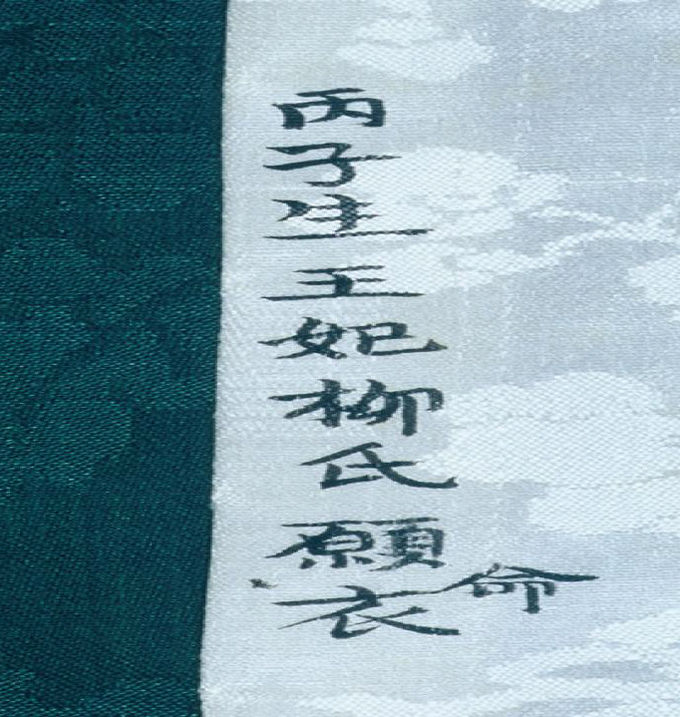 丙子生王妃柳氏願衣
命